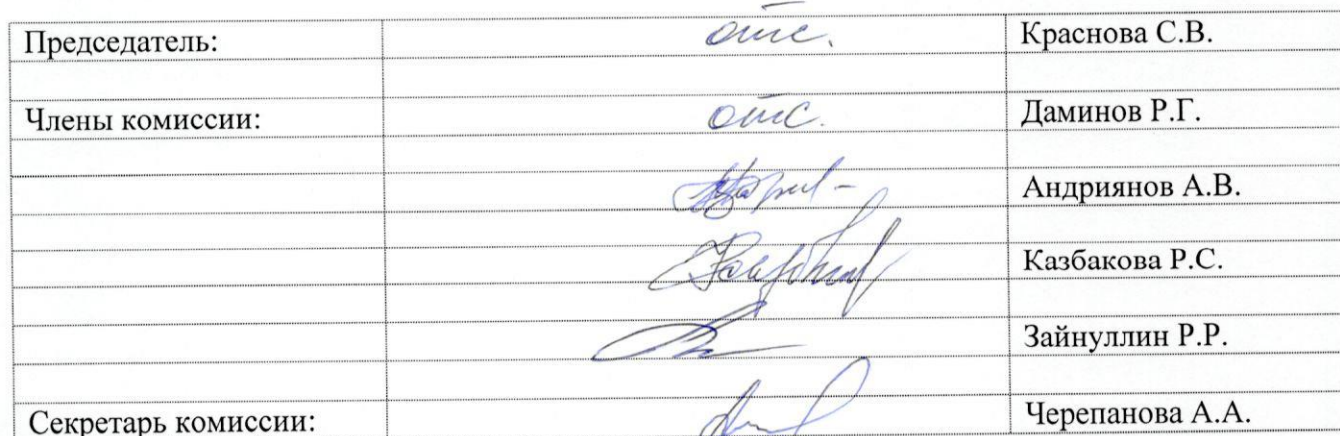 Председатель: отс. Краснова С.В.
Члены комиссии: отс. Даминов Р.Г.
Андриянов А.В.
Казбакова Р.С.
Зайнуллин Р.Р.
Секретарь комиссии: Черепанова А.А.